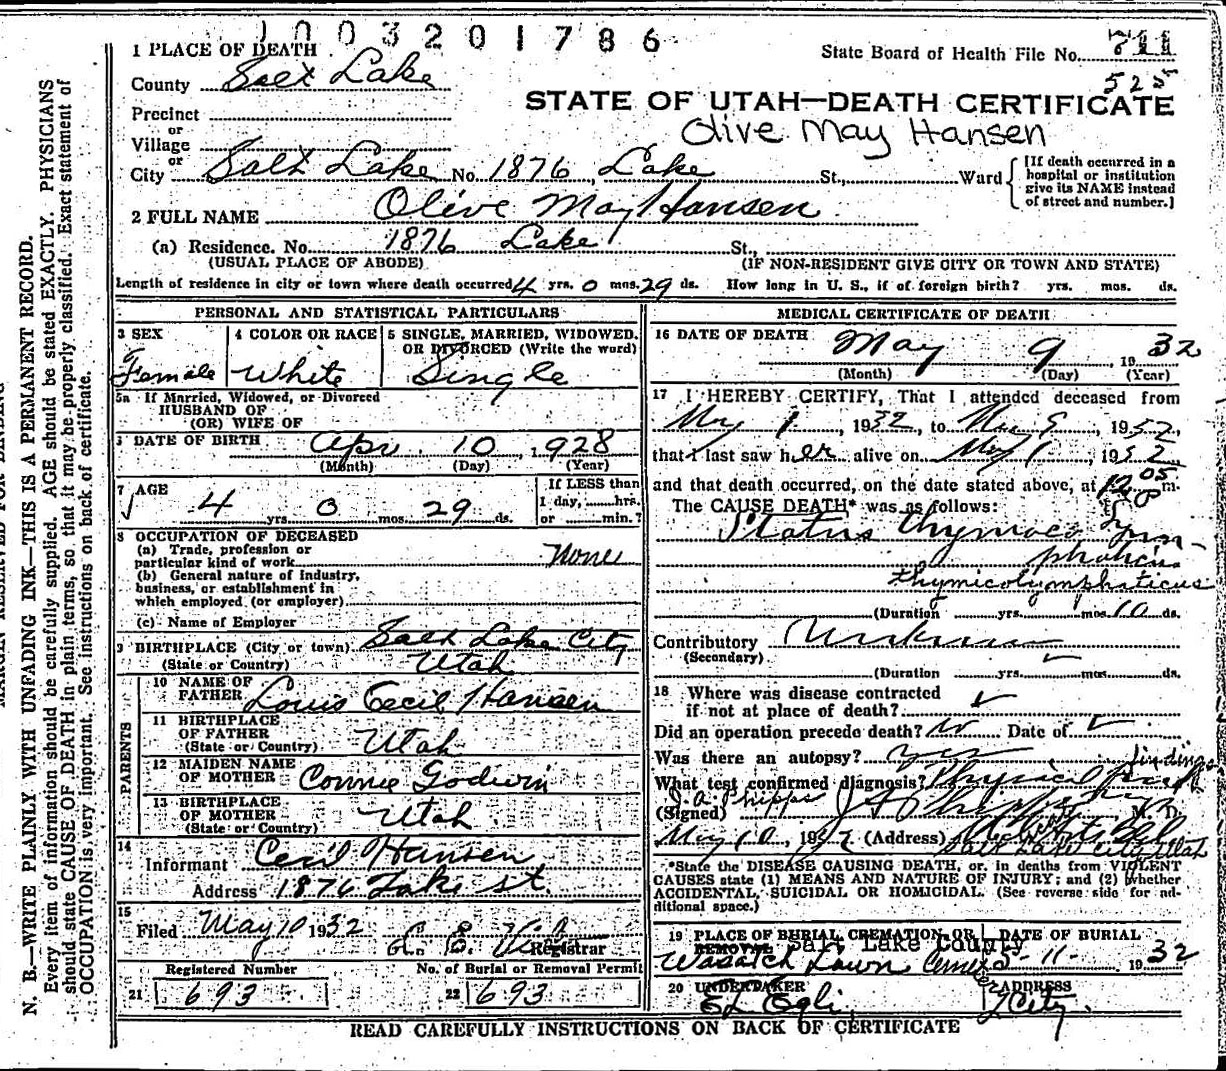 1003201786
1 PLACE OF DEATH
State Board of Health File No. 711
County Salt Lake
525
STATE OF UTAH—DEATH CERTIFICATE
Precinct
or
Olive May Hansen
Village
or
City Salt Lake No. 1876, Lake St., Ward
[If death occurred in a
hospital or institution
give its NAME instead
of street and number.]
2 FULL NAME Olive May Hansen
(a) Residence. No. 1876 Lake St.,
(USUAL PLACE OF ABODE) (IF NON-RESIDENT GIVE CITY OR TOWN AND STATE)
Length of residence in city or town where death occurred 4 yrs. 0 mos. 29 ds. How long in U. S., if of foreign birth? yrs. mos. ds.
PERSONAL AND STATISTICAL PARTICULARS
3 SEX
Female
4 COLOR OR RACE
White
5 SINGLE, MARRIED, WIDOWED,
OR DIVORCED (Write the word)
Single
5a If Married, Widowed, or Divorced
HUSBAND OF
(OR) WIFE OF
DATE OF BIRTH Apr. 10, 1928
(Month) (Day) (Year)
7 AGE
4 yrs. 0 mos. 29 ds.
If LESS than
1 day, hrs.
or min.?
8 OCCUPATION OF DECEASED
(a) Trade, profession or
particular kind of work None
(b) General nature of industry,
business, or establishment in
which employed (or employer)
(c) Name of Employer
9 BIRTHPLACE (City or town) Salt Lake City
(State or Country) Utah
PARENTS
10 NAME OF
FATHER Louis Cecil Hansen
11 BIRTHPLACE
OF FATHER
(State or Country) Utah
12 MAIDEN NAME
OF MOTHER Connie Godwin
13 BIRTHPLACE
OF MOTHER
(State or Country) Utah
14
Informant Cecil Hansen
Address 1876 Lake st.
15
Filed May 10 1932
Registrar
Registered Number
21 693
No. of Burial or Removal Permit
22 693
MEDICAL CERTIFICATE OF DEATH
16 DATE OF DEATH May 9, 1932
(Month) (Day) (Year)
17 I HEREBY CERTIFY, That I attended deceased from
May 1, 1932, to May 9, 1932,
that I last saw her alive on May 9, 1932
and that death occurred, on the date stated above, at 12 05 P m.
The CAUSE DEATH* was as follows:
Status thymoco Lym-
phaticus
thymicolymphaticus
(Duration yrs. mos. 10 ds.
Contributory Unknown
(Secondary)
(Duration yrs. mos. ds.
18 Where was disease contracted
if not at place of death?
Did an operation precede death? No Date of
Was there an autopsy? yes
What test confirmed diagnosis? Physical findings
J. A. Phipps
(Signed) J A Phipps M. D.
May 10, 1932 (Address)
Salt Lake City Utah
*State the DISEASE CAUSING DEATH, or, in deaths from VIOLENT
CAUSES state (1) MEANS AND NATURE OF INJURY; and (2) whether
ACCIDENTAL, SUICIDAL OR HOMICIDAL. (See reverse side for ad-
ditional space.)
19 PLACE OF BURIAL CREMATION OR
REMOVAL Salt Lake County
Wasatch Lawn Cemetery
DATE OF BURIAL
5-11- 1932
20 UNDERTAKER
E L Egli
ADDRESS
City.
READ CAREFULLY INSTRUCTIONS ON BACK OF CERTIFICATE
N. B.—WRITE PLAINLY WITH UNFADING INK—THIS IS A PERMANENT RECORD.
Every item of information should be carefully supplied. AGE should be stated EXACTLY. PHYSICIANS
should state CAUSE OF DEATH in plain terms, so that it may be properly classified. Exact statement of
OCCUPATION is very important. See instructions on back of certificate.